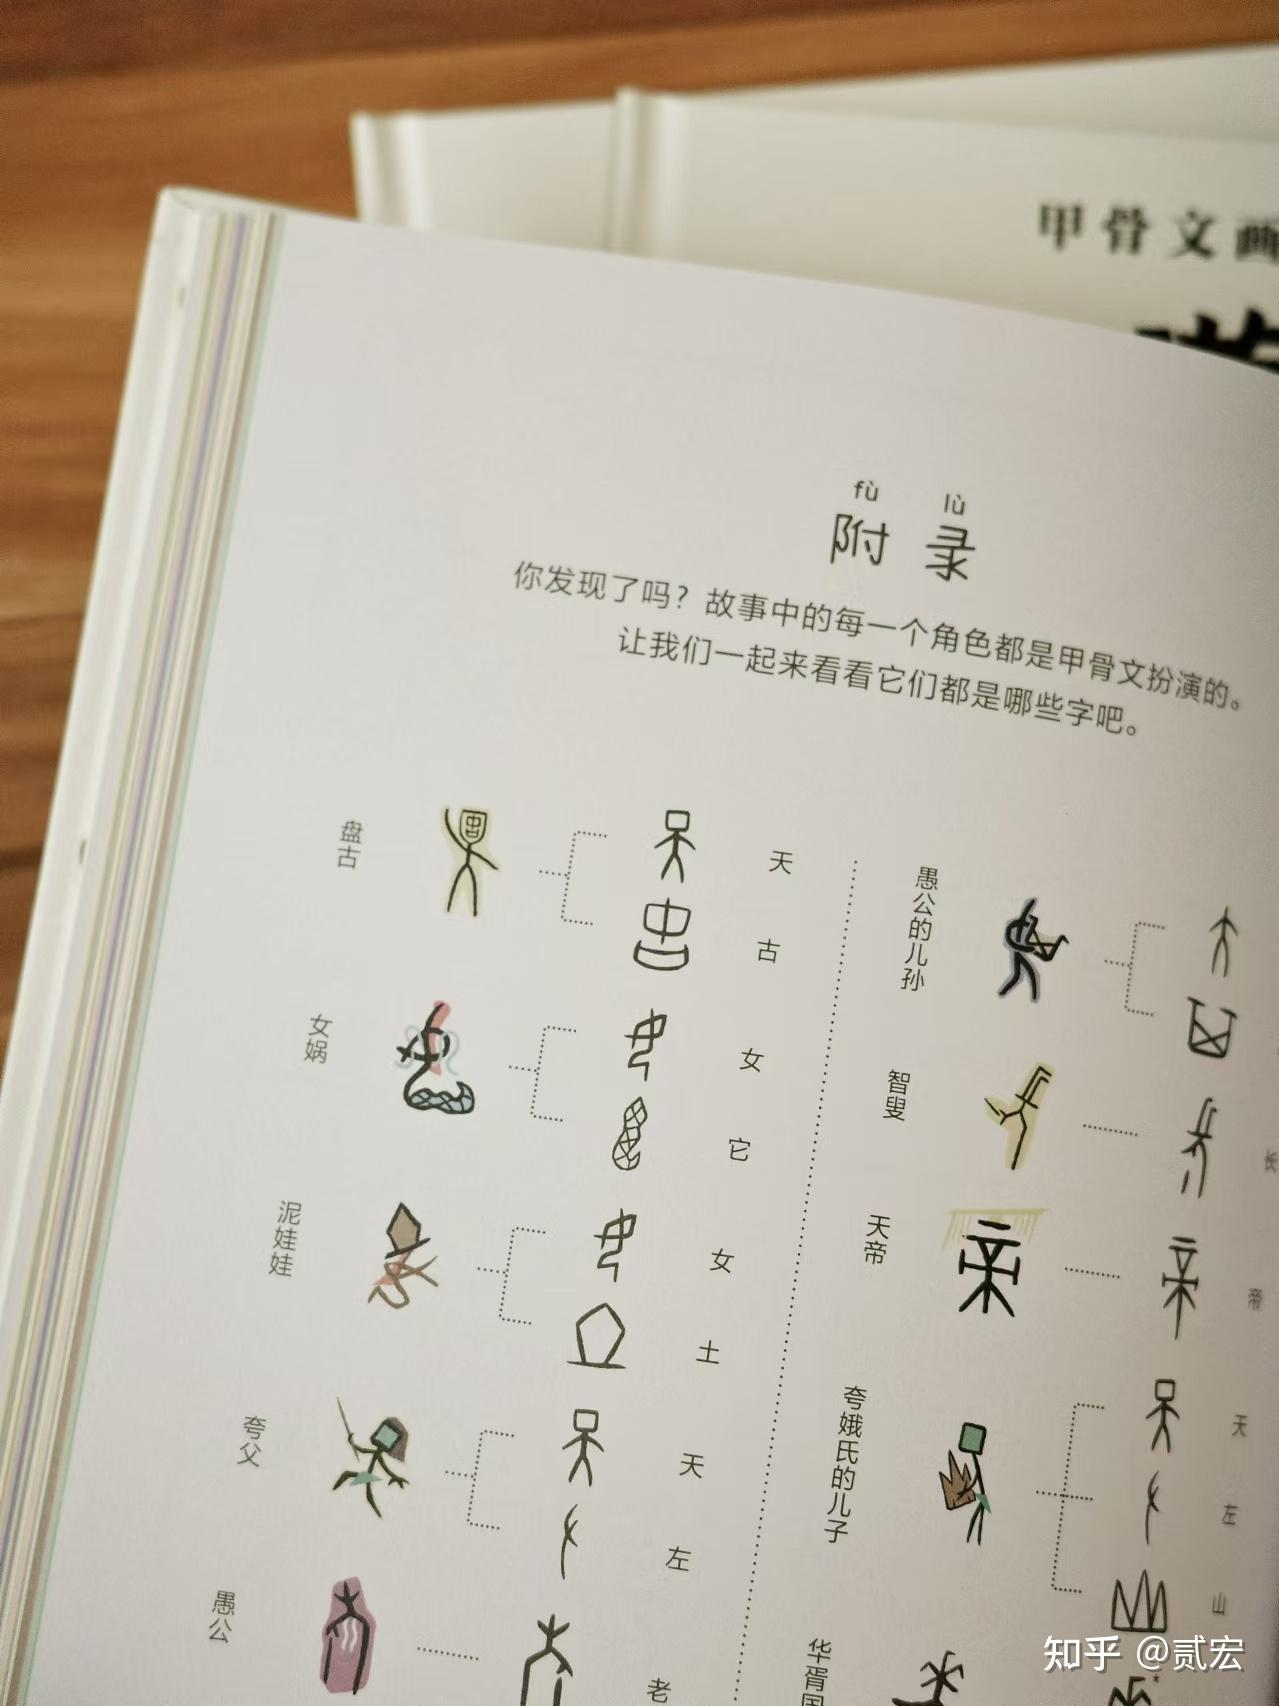 甲骨文画
fù lù
附录
你发现了吗？故事中的每一个角色都是甲骨文扮演的。
让我们一起来看看它们都是哪些字吧。
盘古
天
古
女娲
女
它
泥娃娃
女
土
夸父
天
左
愚公
老
愚公的儿孙
智叟
长
天帝
帝
夸娥氏的儿子
天
左
山
华胥国
知乎 @贰宏